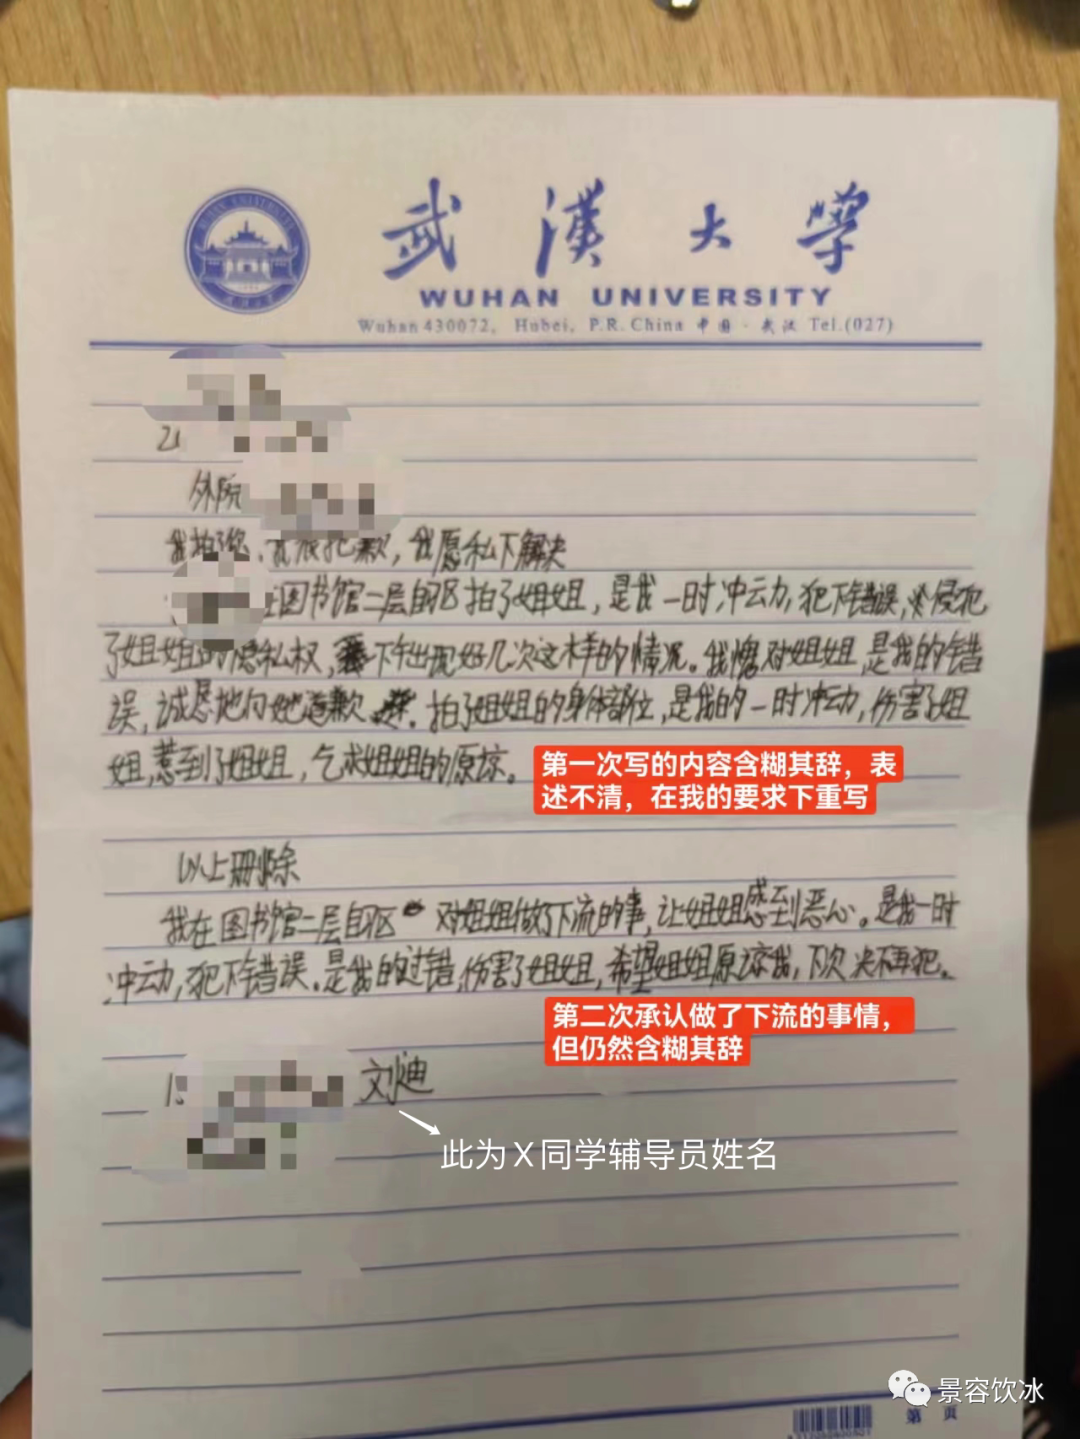 武漢大學
WUHAN UNIVERSITY
Wuhan 430072, Hubei, P.R. China 中国·武汉 Tel.(027)
21
外院
我拍了您、我很抱歉，我愿私下解决
在图书馆二层自习区拍了姐姐，是我一时冲动，犯下错误，侵犯
了姐姐的隐私权，下午出现好几次这样的情况。我愧对姐姐，是我的错
误，诚恳地向她道歉。拍了姐姐的身体部位，是我的一时冲动，伤害了姐
姐，惹到了姐姐，乞求姐姐的原谅。
第一次写的内容含糊其辞，表
述不清，在我的要求下重写
以上删除
我在图书馆二层自习区 对姐姐做了下流的事，让姐姐感到恶心。是我一时
冲动，犯下错误。是我的过错，伤害了姐姐，希望姐姐原谅我，下次决不再犯。
第二次承认做了下流的事情，
但仍然含糊其辞
刘迪
此为X同学辅导员姓名
景容饮冰
第 页